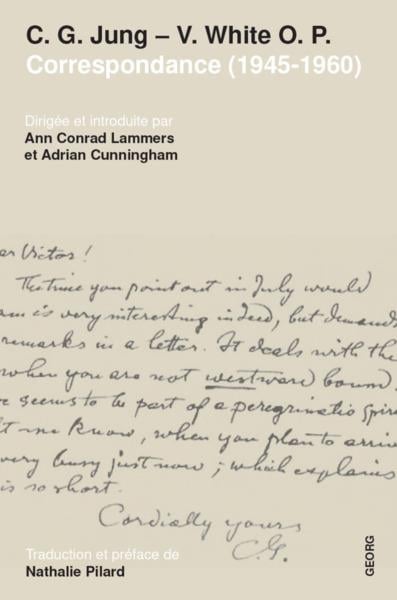 C. G. Jung – V. White O. P.
Correspondance (1945-1960)
Dirigée et introduite par
Ann Conrad Lammers
et Adrian Cunningham
ar Victor!
The time you point out in July would
am is very interesting indeed, but demands
remarks in a letter. It deals with the
when you are not westward bound.
e seems to be part of a peregrinatio spiri
t me know, when you plan to arriv
very busy just now; which explains
is so short.
Cordially yours
C.G.
Traduction et préface de
Nathalie Pilard
GEORG